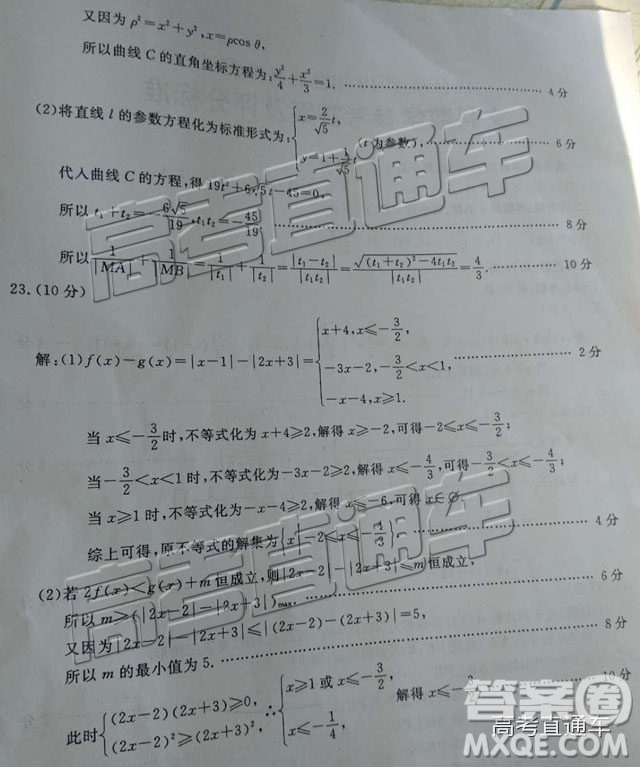 又因为ρ²=x²+y²,x=ρcos θ,
所以曲线 C 的直角坐标方程为:y²/4+x²/3=1. …… 4 分
(2)将直线 l 的参数方程化为标准形式为:{x=2/√5 t, y=1+1/√5 t (t 为参数), …… 6 分
代入曲线 C 的方程,得 19t²+6√5t-45=0,
所以 t₁+t₂=-6√5/19,t₁t₂=-45/19. …… 8 分
所以 1/|MA|+1/|MB|=1/|t₁|+1/|t₂|=|t₁-t₂|/|t₁t₂|=√((t₁+t₂)²-4t₁t₂)/|t₁t₂|=4/3. …… 10 分
23.(10 分)
解:(1)f(x)-g(x)=|x-1|-|2x+3|={x+4,x≤-3/2, -3x-2,-3/2<x<1, -x-4,x≥1. …… 2 分
当 x≤-3/2 时,不等式化为 x+4≥2,解得 x≥-2,可得-2≤x≤-3/2;
当-3/2<x<1 时,不等式化为-3x-2≥2,解得 x≤-4/3,可得-3/2<x≤-4/3;
当 x≥1 时,不等式化为-x-4≥2,解得 x≤-6,可得 x∈∅.
综上可得,原不等式的解集为{x|-2≤x≤-4/3}. …… 4 分
(2)若 2f(x)<g(x)+m 恒成立,则|2x-2|-|2x+3|≤m恒成立,
所以 m≥(|2x-2|-|2x+3|)max. …… 6 分
又因为|2x-2|-|2x+3|≤|(2x-2)-(2x+3)|=5,
所以 m 的最小值为 5. …… 8 分
此时{(2x-2)(2x+3)≥0, (2x-2)²≥(2x+3)², ∴{x≥1 或 x≤-3/2, x≤-1/4, 解得 x≤-3 …… 10 分
高考直通车
高考直通车
答案圈
高考直通车
MXQE.COM